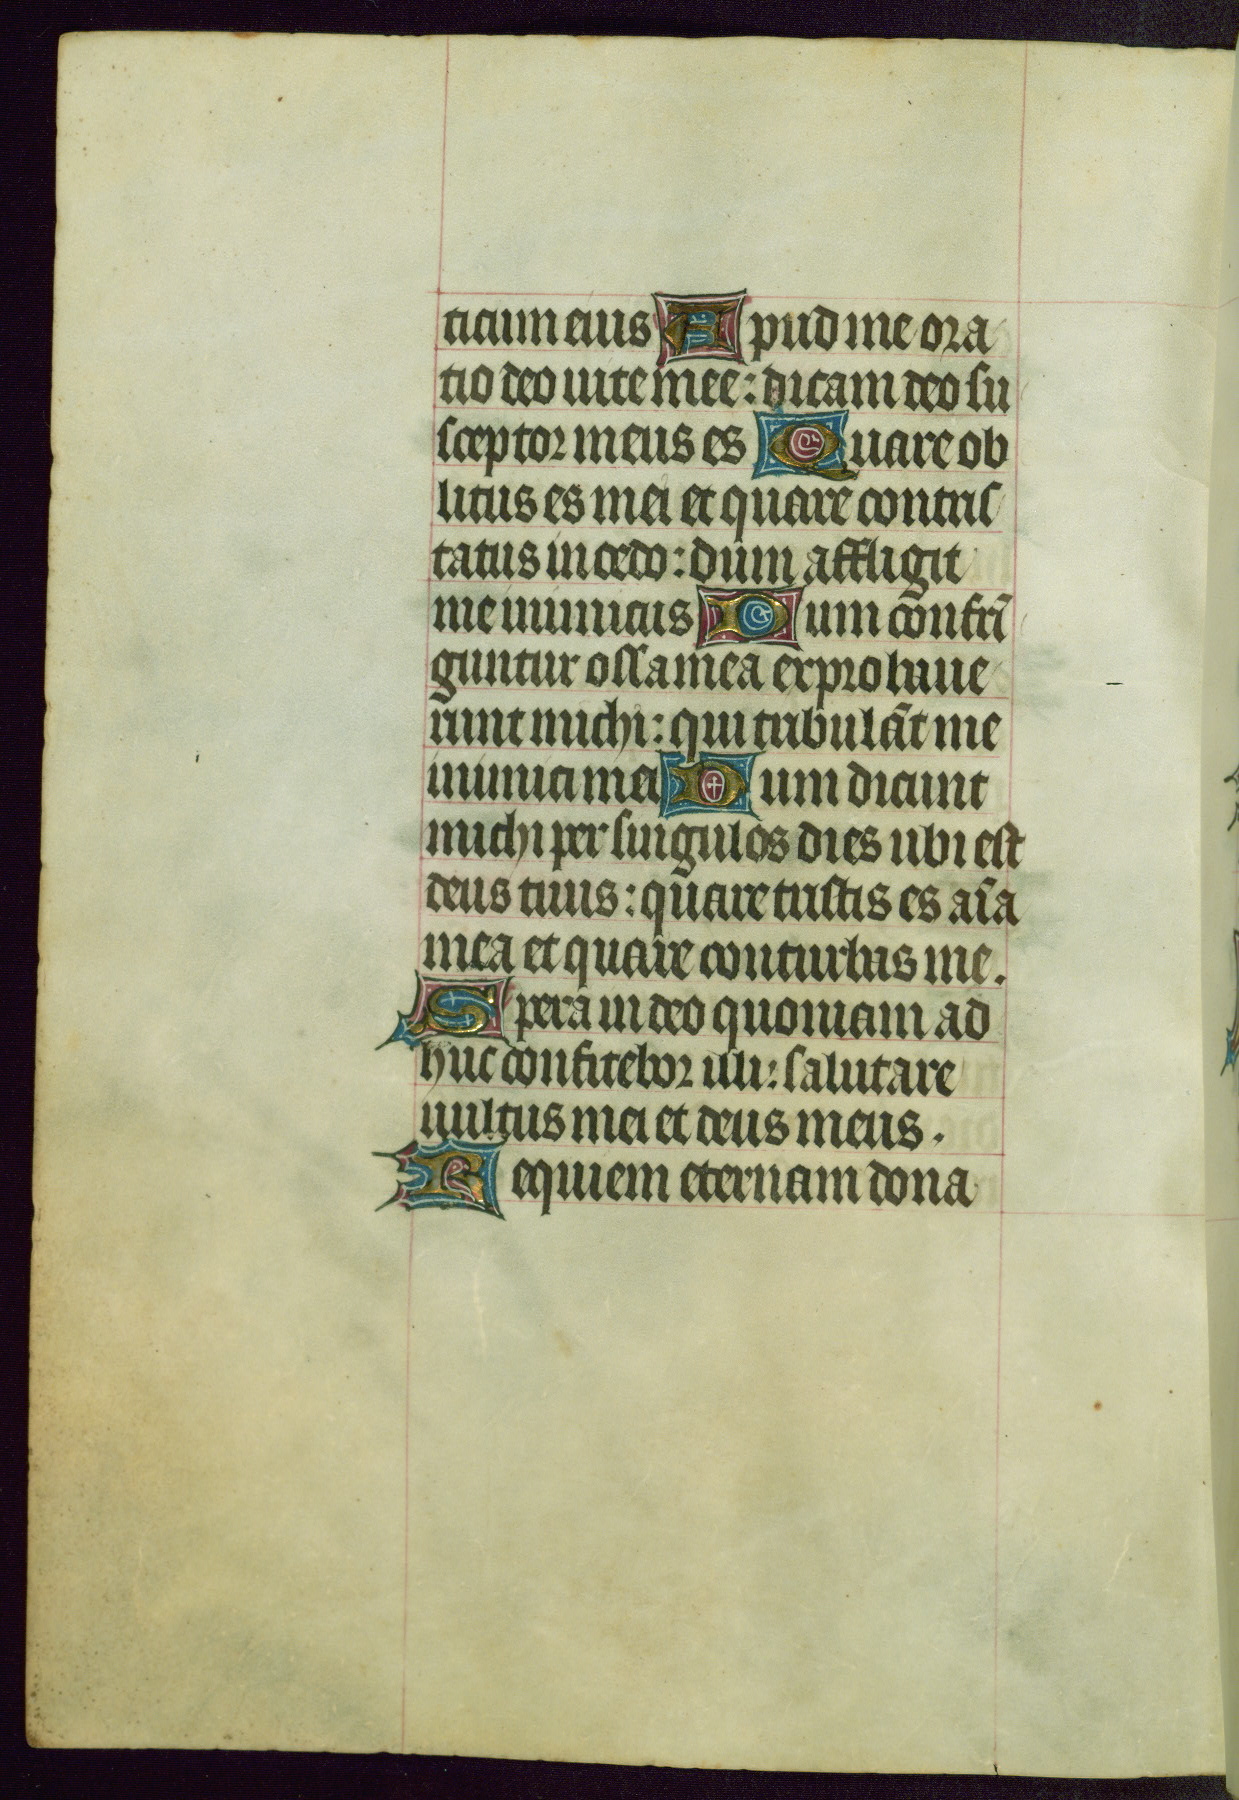 ticum eius Apud me ora
tio deo uite mee: dicam deo su
sceptor meus es Quare ob
litus es mei et quare contris
tatus incedo: dum affligit
me inimicus Dum confrī
guntur ossa mea exprobraue
runt michi: qui tribulāt me
inimici mei Dum dicunt
michi per singulos dies ubi est
deus tuus: quare tristis es aīa
mea et quare conturbas me.
Spera in deo quoniam ad
huc confitebor illi: salutare
uultus mei et deus meus.
Requiem eternam dona